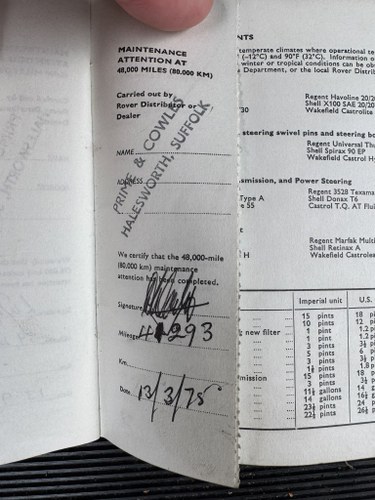 MAINTENANCE
ATTENTION AT
48,000 MILES (80.000 KM)
Carried out by
Rover Distributor or
Dealer
NAME
ADDRESS
& COWLES
HALESWORTH, SUFFOLK
We certify that the 48,000-mile
(80.000 km) maintenance
attention has been completed.
Signature
Mileage 41293
Km.
Date 13/3/75
NTS
temperate climates where operational te
(–12°C) and 90°F (32°C). Information o
winter or tropical conditions can be ob
Department, or the local Rover Distrib
Regent Havoline 20/20
Shell X100 SAE 20/20
'30 Wakefield Castrolite
steering swivel pins and steering bo
Regent Universal Thu
Shell Spirax 90 EP
Wakefield Castrol Hy
mission, and Power Steering
Regent 3528 Texama
Type A Shell Donax T6
e 55 Castrol T.Q. AT Flui
Regent Marfak Multi
Shell Retinax A
H Wakefield Castrolea
Imperial unit U.S.
15 pints 18 pi
10 pints 12 pi
ng new filter 1 pint 1.2 pi
1 pint 1.2 pi
3 pints 3½ pi
5 pints 6 pi
3 pints 3½ pi
1½ pints 1.8 pi
mission 15 pints 18 pi
3 pints 3½ pi
11½ gallons 14 g
14 gallons 16½ g
pints 24 p
pints 26½ p